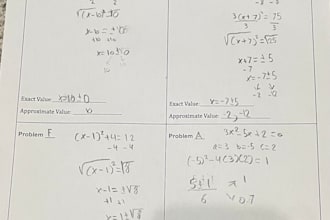 √(x-10)² = √0
x-10 = ±√0
+10 +10
x = 10 ± 0
Exact Value: x=10±0
Approximate Value: 10
3(x+7)² = 75
3 3
√(x+7)² = √25
x+7 = ±5
-7 -7
x = -7±5
-2 -12
Exact Value: x=-7±5
Approximate Value: -2, -12
Problem F
(x-1)²+4=12
-4 -4
√(x-1)² = √8
x-1 = ±√8
+1 +1
x = 1±√8
Problem A
3x²-5x+2=0
a=3 b=-5 c=2
(-5)²-4(3)(2)=1
5±1
6
1
0.7